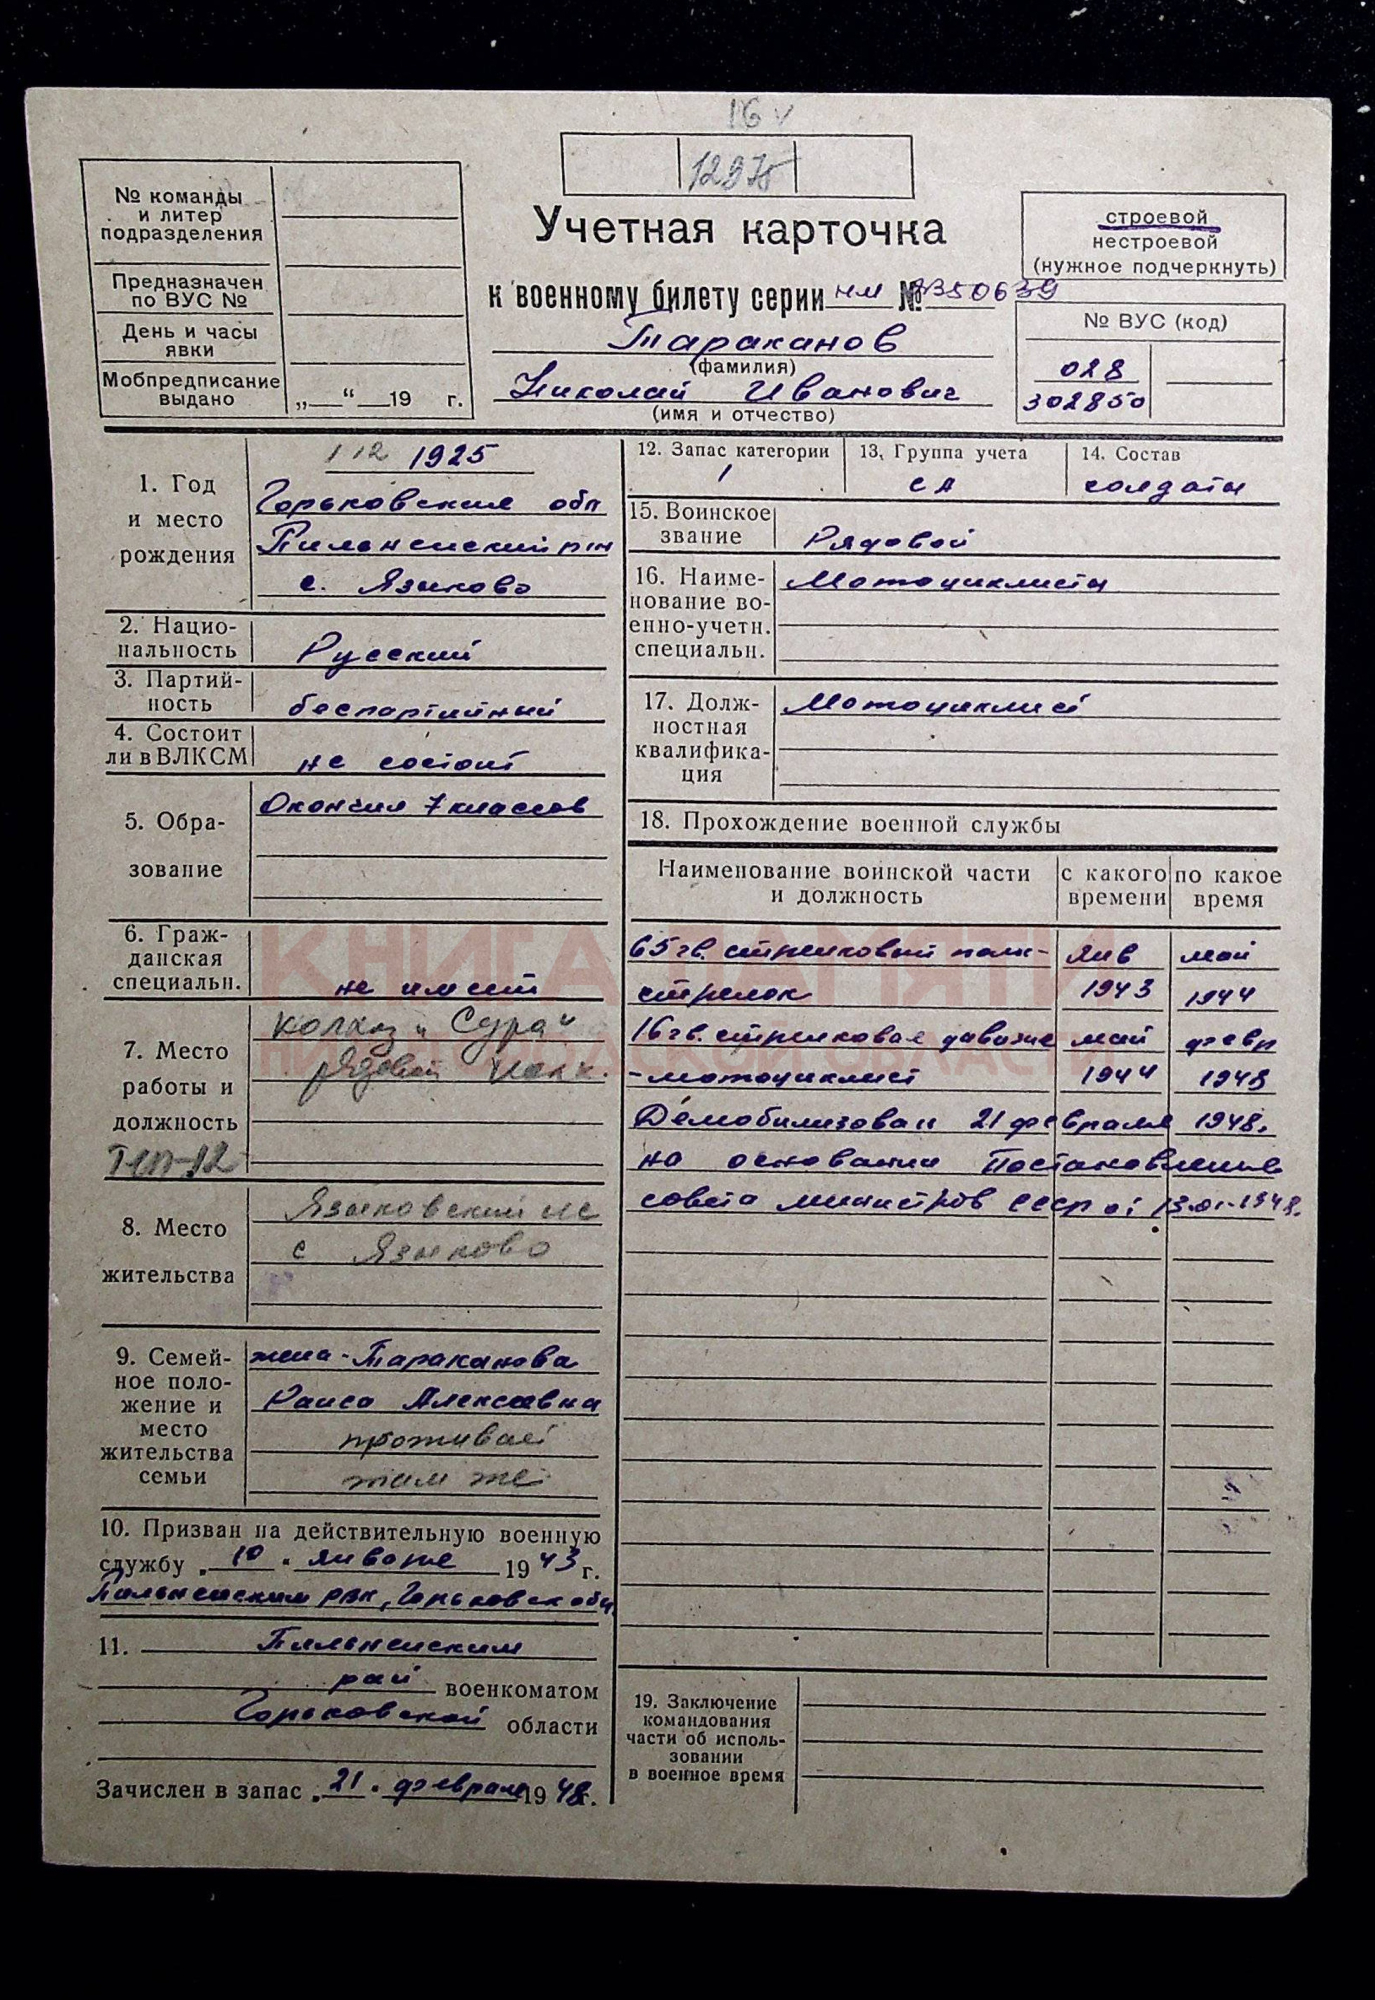 16 v
№ команды
и литер
подразделения
Предназначен
по ВУС №
День и часы
явки
Мобпредписание
выдано
„ “ 19 г.
Учетная карточка
к военному билету серии НМ № 3350639
Тараканов
(фамилия)
Николай Иванович
(имя и отчество)
строевой
нестроевой
(нужное подчеркнуть)
№ ВУС (код)
028
302850
1. Год
и место
рождения
1 12 1925
Горьковская обл
Пильненский р-н
с. Языково
2. Нацио-
нальность
Русский
3. Партий-
ность
беспартийный
4. Состоит
ли в ВЛКСМ
не состоит
5. Обра-
зование
Окончил 7 классов
6. Граж-
данская
специальн.
не имеет
7. Место
работы и
должность
колхоз „Сура“
Рядовой колх.
8. Место
жительства
Языковский с/с
с Языково
9. Семей-
ное поло-
жение и
место
жительства
семьи
жена - Тараканова
Раиса Алексеевна
проживает
там же
10. Призван на действительную военную
службу „10“ января 1943 г.
Пильненским рвк, Горьковск обл.
11. Пильненским
рай военкоматом
Горьковской области
Зачислен в запас „21“ февраля 1948 г.
12. Запас категории
1
13. Группа учета
СА
14. Состав
солдаты
15. Воинское
звание
Рядовой
16. Наиме-
нование во-
енно-учетн.
специальн.
Мотоциклисты
17. Долж-
ностная
квалифика-
ция
Мотоциклист
18. Прохождение военной службы
Наименование воинской части
и должность
с какого
времени
по какое
время
65 гв. стрелковый полк - янв май
стрелок 1943 1944
16 гв. стрелковая дивизия май февр
- мотоциклист 1944 1948
Демобилизован 21 февраля 1948г.
на основании Постановления
совета министров СССР от 13.01.1948.
19. Заключение
командования
части об исполь-
зовании
в военное время
КНИГА ПАМЯТИ
НИЖЕГОРОДСКОЙ ОБЛАСТИ